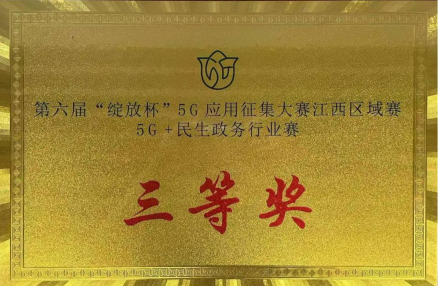 第六届“绽放杯”5G应用征集大赛江西区域赛
5G+民生政务行业赛
三等奖